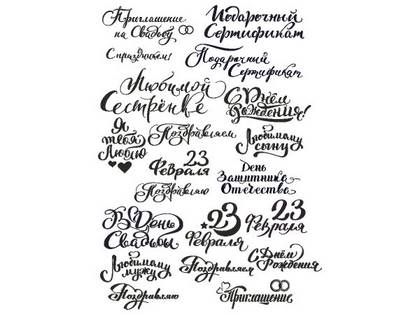 Приглашение
на Свадьбу
Подарочный
Сертификат
С праздником!
Подарочный
Сертификат
Любимой
Сестрёнке
С Днём
Рождения!
Я
тебя
Люблю
Поздравляем
Любимому
сыну
23
Февраля
День
Защитника
Отечества
Поздравляю
В День
Свадьбы
23
Февраля
23
Февраля
Любимому
мужу
Поздравляем
С Днём
Рождения
Поздравляю
Приглашение